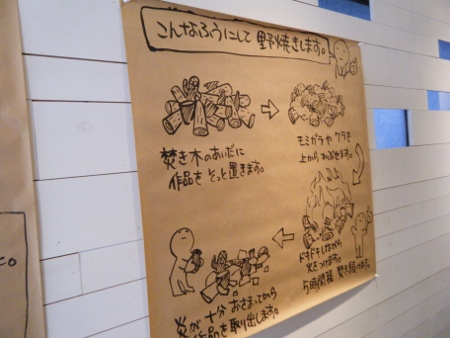 こんなふうにして 野焼きします。
焚き木のあいだに
作品を そっと置きます。
モミガラや ワラを
上から かぶせます。
ドキドキしながら
火をつけます。
5時間程 焚き続けます。
炎が 十分 おさまってから
作品を取り出します。
co